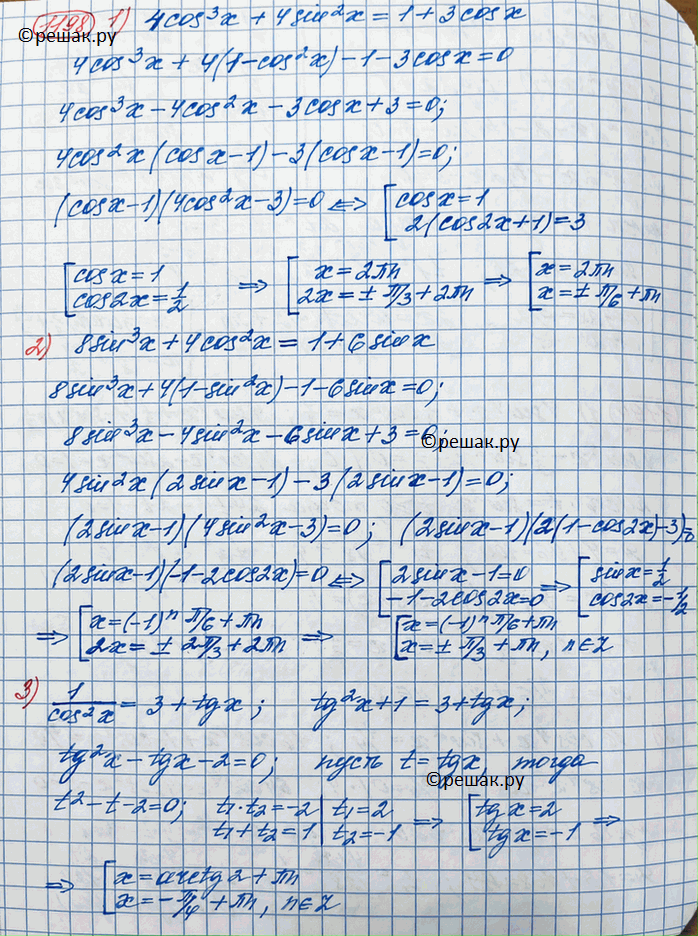 1198 1) 4cos³x + 4sin²x = 1 + 3cosx
©решак.ру
4cos³x + 4(1-cos²x) - 1 - 3cosx = 0
4cos³x - 4cos²x - 3cosx + 3 = 0;
4cos²x(cosx-1) - 3(cosx-1) = 0;
(cosx-1)(4cos²x-3) = 0 <=> [cosx = 1
2(cos2x+1) = 3
[cosx = 1 => [x = 2πn => [x = 2πn
cos2x = 1/2 2x = ± π/3 + 2πn x = ± π/6 + πn
2) 8sin³x + 4cos²x = 1 + 6sinx
8sin³x + 4(1-sin²x) - 1 - 6sinx = 0;
8sin³x - 4sin²x - 6sinx + 3 = 0;
©решак.ру
4sin²x(2sinx-1) - 3(2sinx-1) = 0;
(2sinx-1)(4sin²x-3) = 0; (2sinx-1)(2(1-cos2x)-3) = 0
(2sinx-1)(-1-2cos2x) = 0 <=> [2sinx-1 = 0 => [sinx = 1/2
-1-2cos2x = 0 cos2x = -1/2
=> [x = (-1)ⁿ π/6 + πn => [x = (-1)ⁿ π/6 + πn
2x = ± 2π/3 + 2πn x = ± π/3 + πn, n∈Z
3) 1/cos²x = 3 + tgx; tg²x + 1 = 3 + tgx;
tg²x - tgx - 2 = 0; пусть t = tgx, тогда
©решак.ру
t² - t - 2 = 0; t₁·t₂ = -2 | t₁ = 2 => [tgx = 2 =>
t₁ + t₂ = 1 | t₂ = -1 tgx = -1
=> [x = arctg2 + πn
x = -π/4 + πn, n∈Z